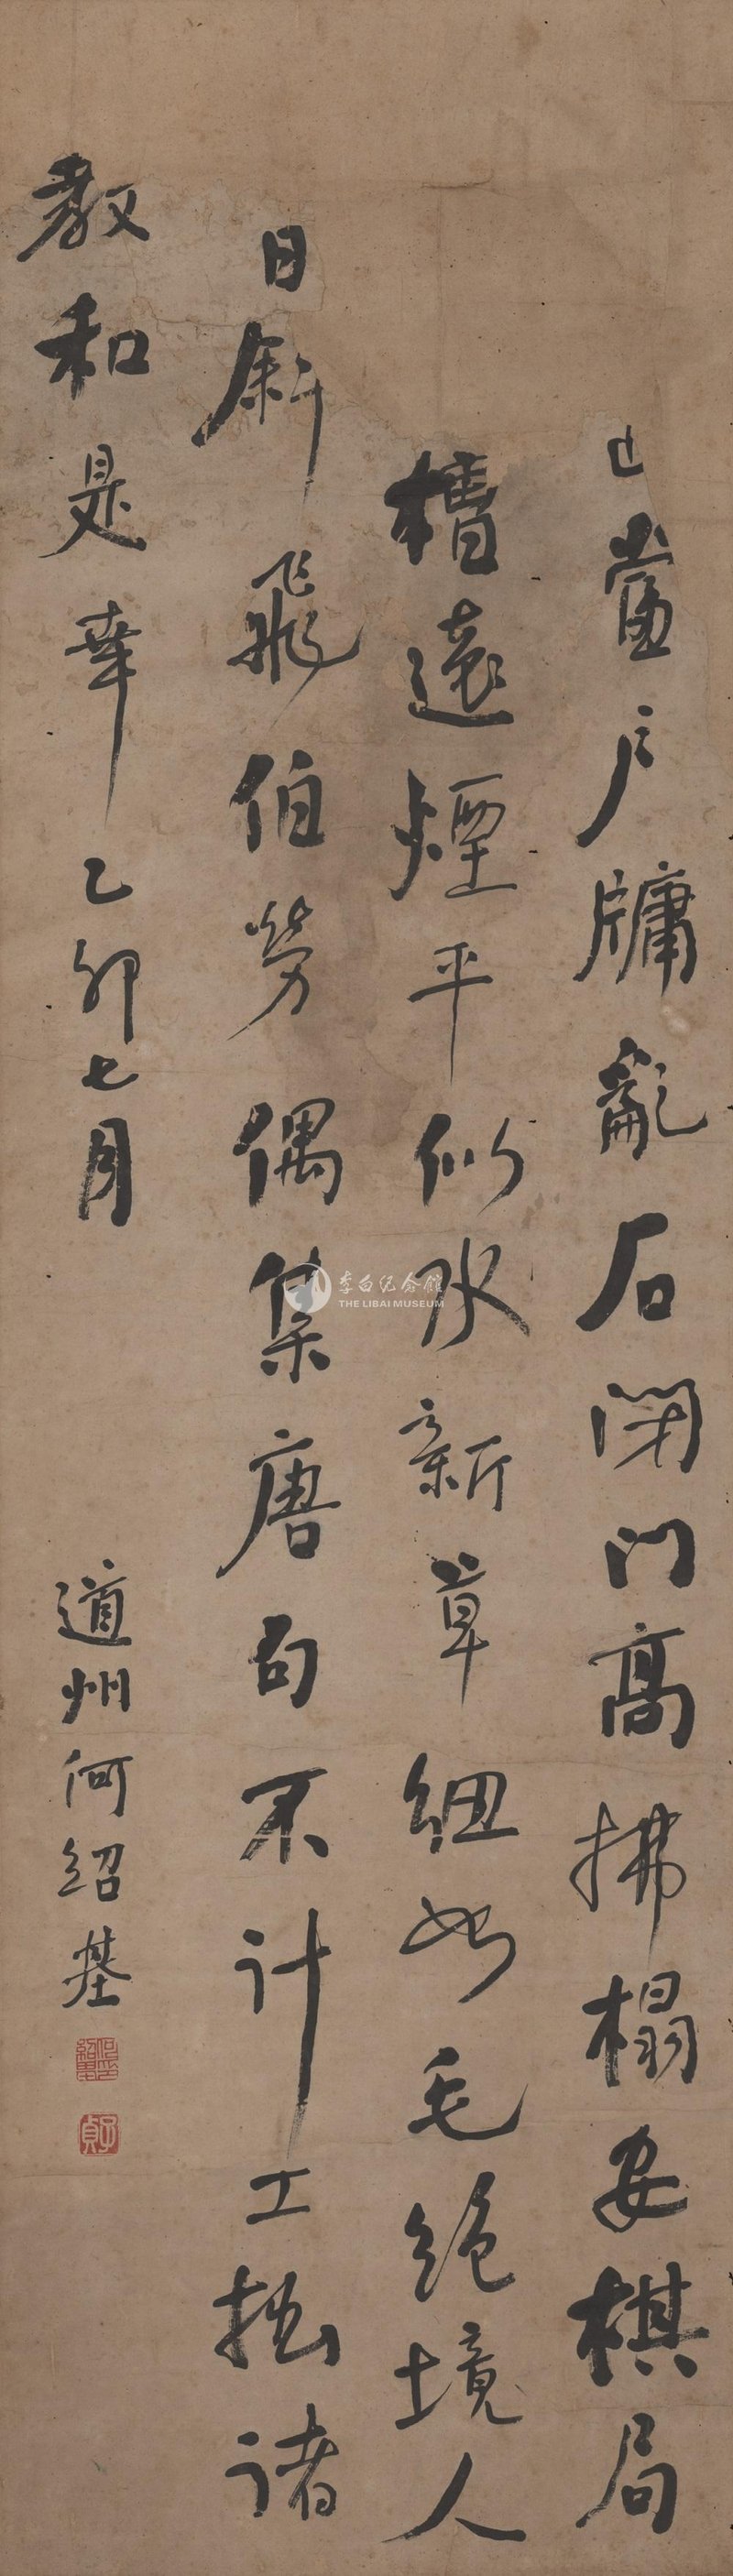 已當戶牖亂石閉門高拂榻安棋局
槽遠煙平似水新草細如毛絕境人
日斜飛伯勞偶集唐句不計工拙諸
教和是幸乙卯七月
道州何紹基
子貞
李白纪念馆
THE LIBAI MUSEUM